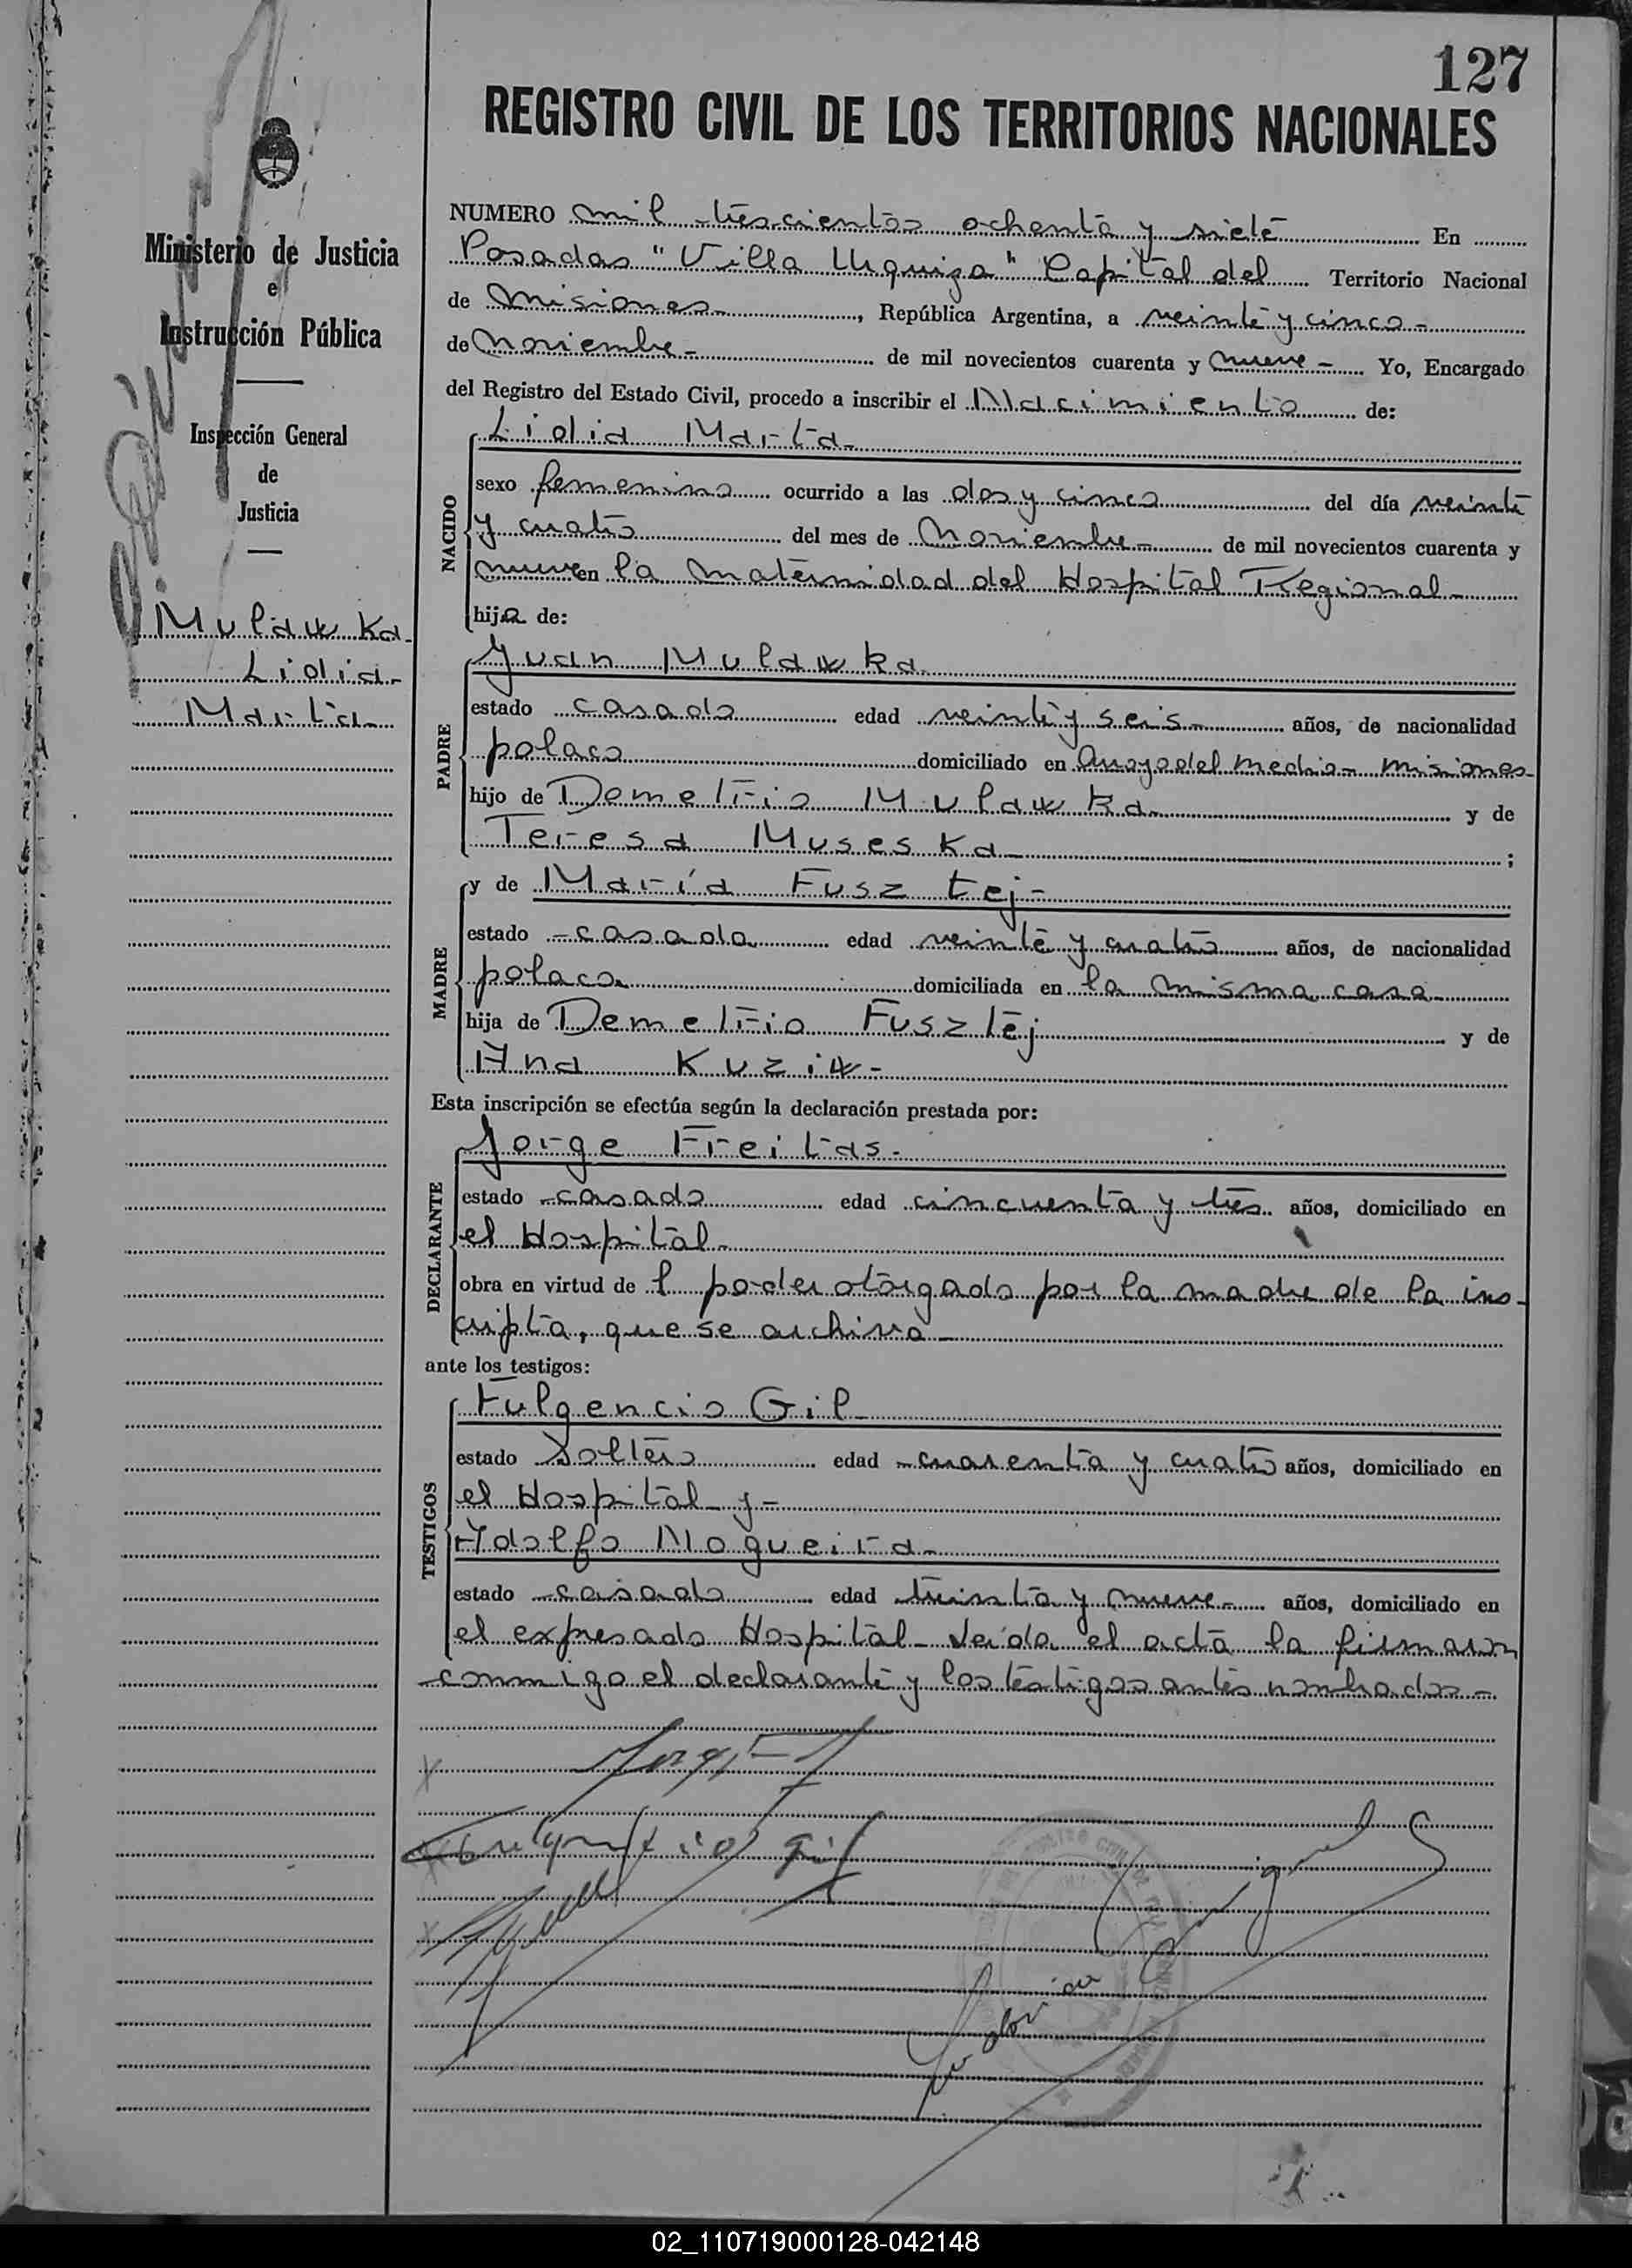 127
REGISTRO CIVIL DE LOS TERRITORIOS NACIONALES
Ministerio de Justicia
e
Instrucción Pública
Inspección General
de
Justicia
Mulawka
Lidia
Marta
NUMERO mil trescientos ochenta y siete En
Posadas "Villa Urquiza" Capital del Territorio Nacional
de Misiones, República Argentina, a veinte y cinco
de Noviembre de mil novecientos cuarenta y nueve Yo, Encargado
del Registro del Estado Civil, procedo a inscribir el Nacimiento de:
Lidia Marta
NACIDO
sexo femenino ocurrido a las dos y cinco del día veinte
y cuatro del mes de Noviembre de mil novecientos cuarenta y
nueve en la Maternidad del Hospital Regional
hija de:
PADRE
Juan Mulawka
estado casado edad veinte y seis años, de nacionalidad
polaco domiciliado en Arroyo del Medio - Misiones
hijo de Demetrio Mulawka y de
Teresa Museska ;
MADRE
y de María Fusztej
estado casada edad veinte y cuatro años, de nacionalidad
polaca domiciliada en la misma casa
hija de Demetrio Fusztej y de
Ana Kuziw
Esta inscripción se efectúa según la declaración prestada por:
DECLARANTE
Jorge Freitas
estado casado edad cincuenta y tres años, domiciliado en
el Hospital
obra en virtud de l poder otorgado por la madre de la ins-
cripta, que se archiva
ante los testigos:
TESTIGOS
Fulgencio Gil
estado soltero edad cuarenta y cuatro años, domiciliado en
el Hospital y
Adolfo Nogueira
estado casado edad treinta y nueve años, domiciliado en
el expresado Hospital - Leída el acta la firmaron
conmigo el declarante y los testigos antes nombrados
02_110719000128-042148